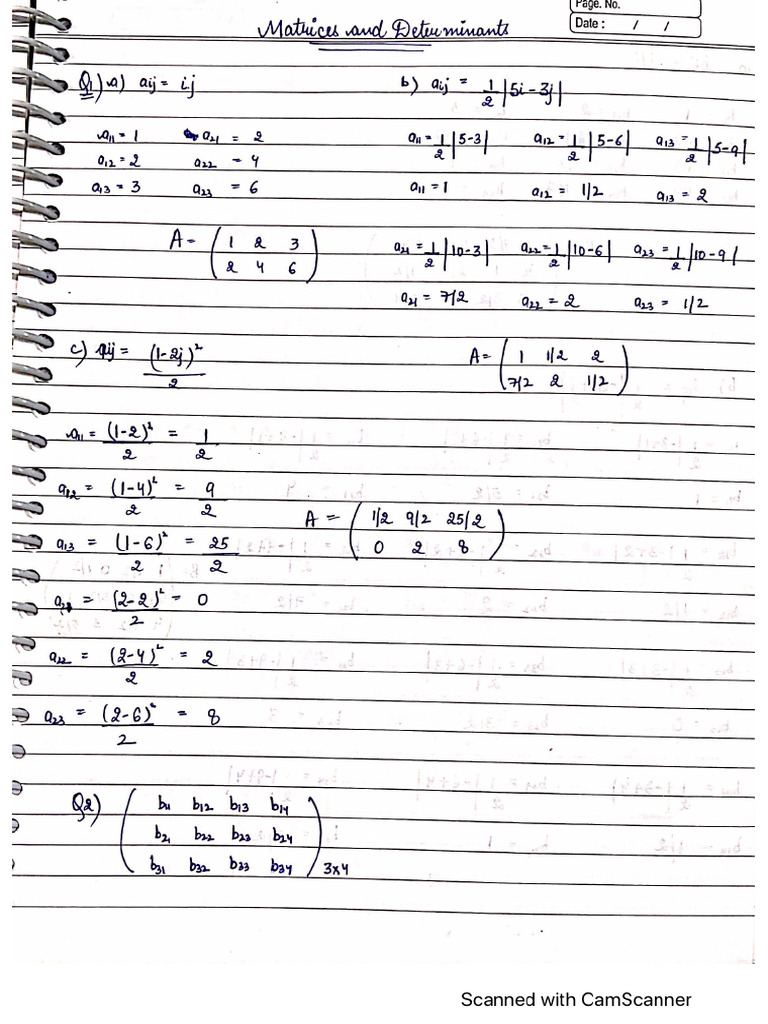 Page. No.
Date : / /
Matrices and Determinants
Q1) a) aij = i.j
a11 = 1 a21 = 2
a12 = 2 a22 = 4
a13 = 3 a23 = 6
A = ( 1 2 3
2 4 6 )
b) aij = 1/2 |5i - 3j|
a11 = 1/2 |5-3| a12 = 1/2 |5-6| a13 = 1/2 |5-9|
a11 = 1 a12 = 1/2 a13 = 2
a21 = 1/2 |10-3| a22 = 1/2 |10-6| a23 = 1/2 |10-9|
a21 = 7/2 a22 = 2 a23 = 1/2
A = ( 1 1/2 2
7/2 2 1/2 )
c) aij = (1-2j)²/2
a11 = (1-2)²/2 = 1/2
a12 = (1-4)²/2 = 9/2
a13 = (1-6)²/2 = 25/2
A = ( 1/2 9/2 25/2
0 2 8 )
= (2-2)²/2 = 0
a22 = (2-4)²/2 = 2
a23 = (2-6)²/2 = 8
Q2) ( b11 b12 b13 b14
b21 b22 b23 b24
b31 b32 b33 b34 ) 3x4
Scanned with CamScanner